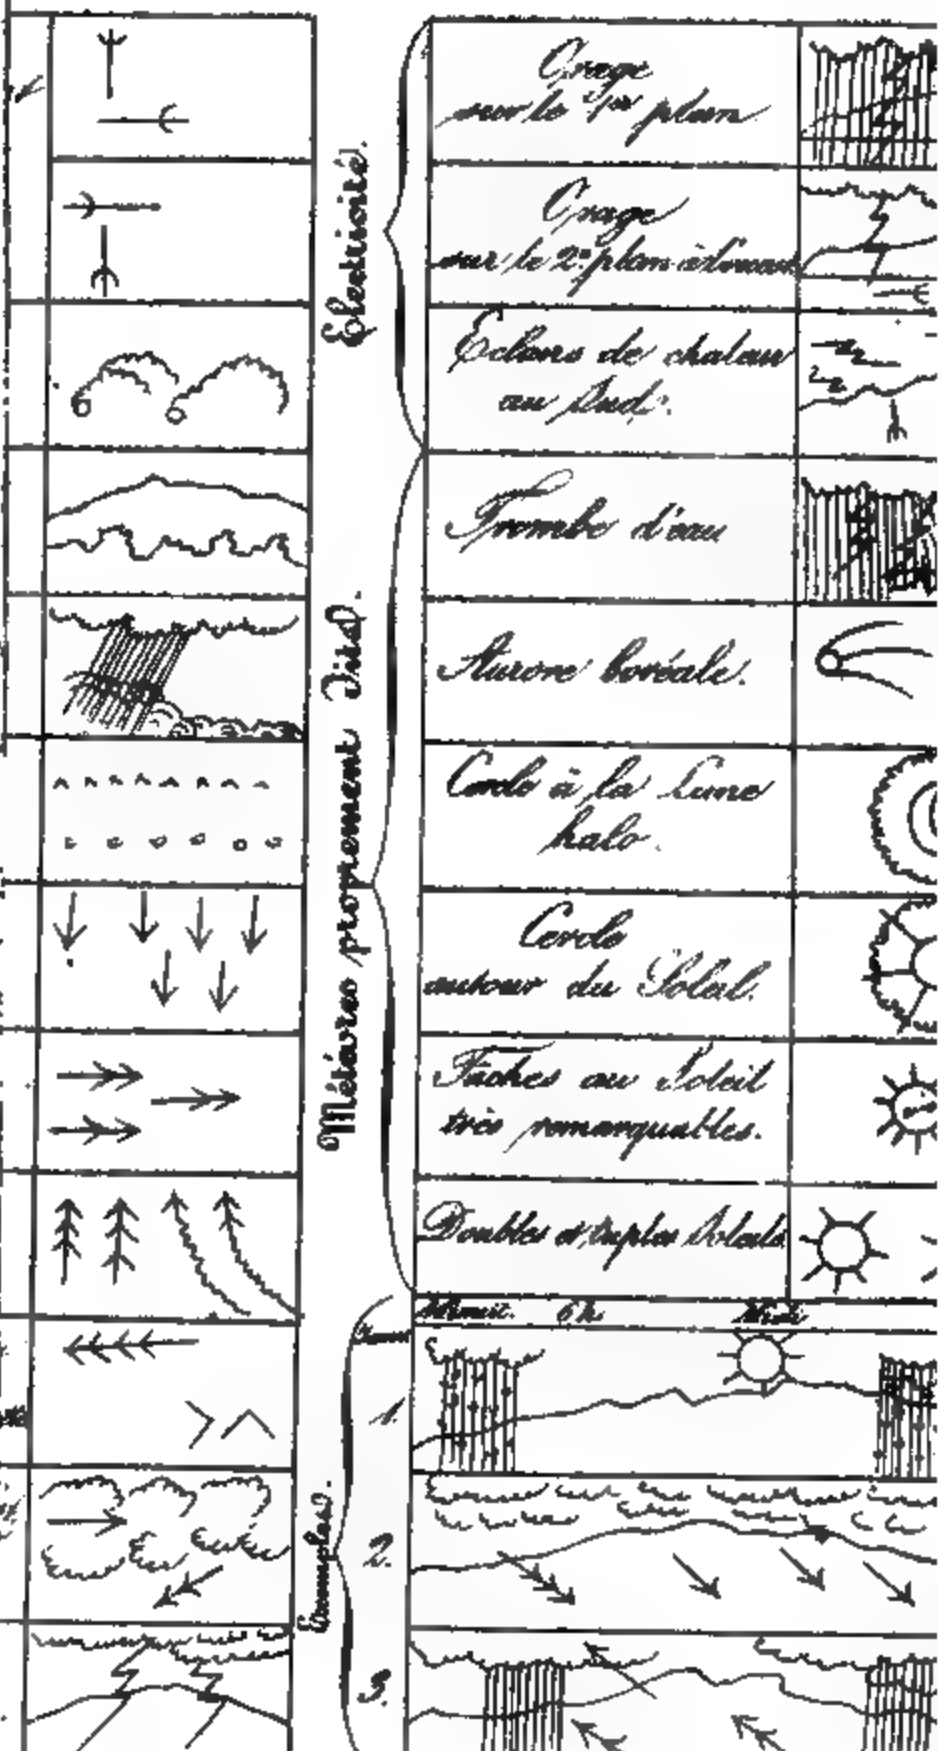 Electricité.
Orage
sur le 1er plan
Orage
sur le 2e plan à
Eclairs de chaleur
au Sud.
Météores proprement dits.
Trombe d'eau
Aurore boréale.
Cercle à la Lune
halo.
Cercle
autour du Soleil.
Taches au Soleil
très remarquables.
Doubles et triples Soleils
Exemples.
Minuit. 6h. Midi
1.
2.
3.